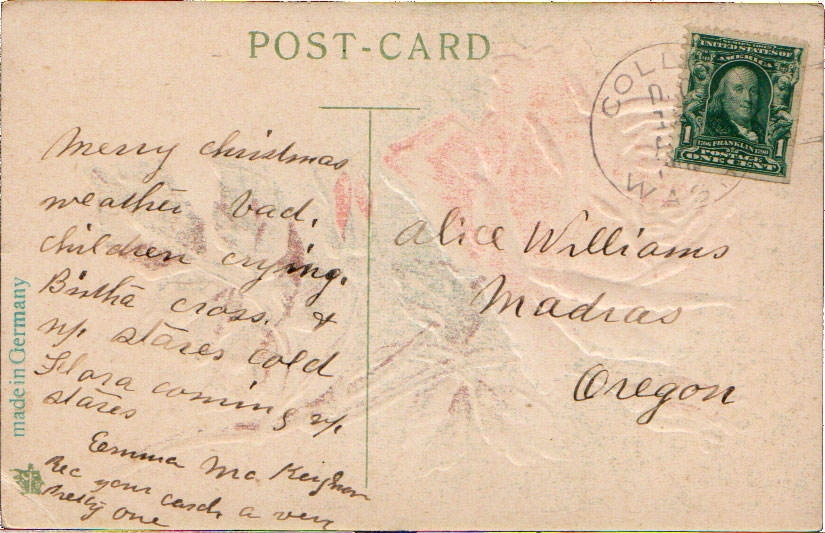 POST-CARD
COLL
WASH
UNITED STATES OF
AMERICA
1 1
1706 FRANKLIN 1790
POSTAGE
ONE CENT
Merry christmas
weather bad.
children crying.
Birtha cross. &
up stares cold
Flora coming up
stares
Emma Mc Keighan
Rec your card a very
pretty one
Alice Williams
Madras
Oregon
made in Germany